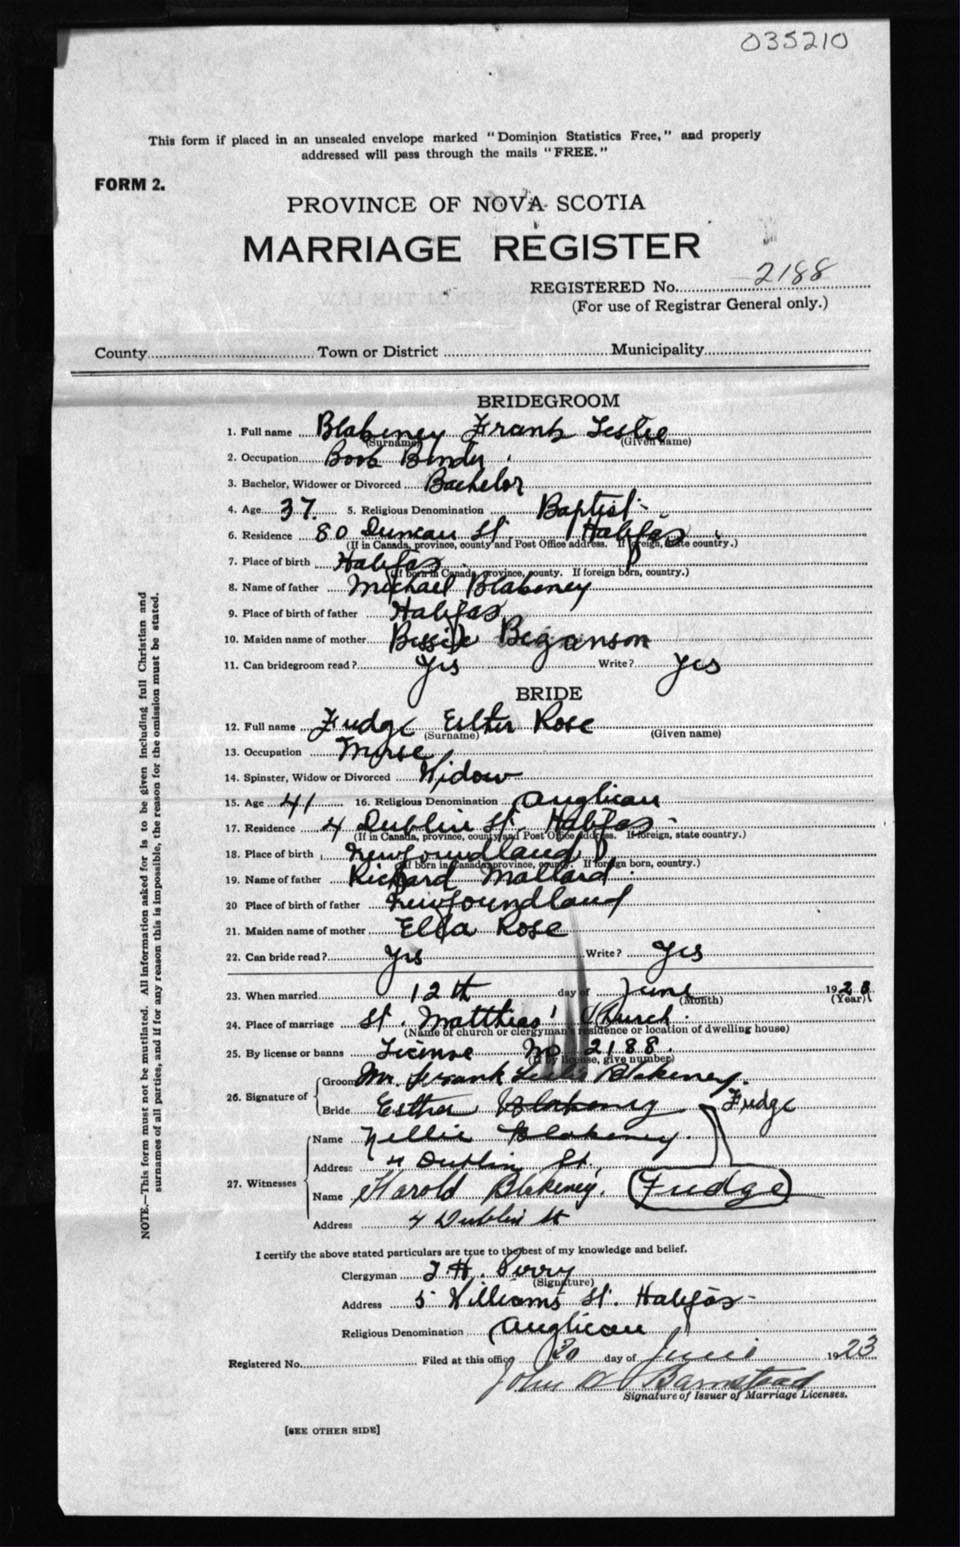 035210
This form if placed in an unsealed envelope marked "Dominion Statistics Free," and properly
addressed will pass through the mails "FREE."
FORM 2.
PROVINCE OF NOVA SCOTIA
MARRIAGE REGISTER
REGISTERED No. 2188
(For use of Registrar General only.)
County Town or District Municipality
BRIDEGROOM
1. Full name Blakeney Frank Leslie
(Surname) (Given name)
2. Occupation Book Binder
3. Bachelor, Widower or Divorced Bachelor
4. Age 37. 5. Religious Denomination Baptist
6. Residence 80 Duncan St. Halifax
(If in Canada, province, county and Post Office address. If foreign, state country.)
7. Place of birth Halifax
(If born in Canada, province, county. If foreign born, country.)
8. Name of father Michael Blakeney
9. Place of birth of father Halifax
10. Maiden name of mother Bessie
11. Can bridegroom read? Yes Write? Yes
BRIDE
12. Full name Fudge Esther Rose
(Surname) (Given name)
13. Occupation Nurse
14. Spinster, Widow or Divorced Widow
15. Age 41 16. Religious Denomination Anglican
17. Residence 4 Dublin St. Halifax
(If in Canada, province, county and Post Office address. If foreign, state country.)
18. Place of birth Newfoundland
(If born in Canada, province, county. If foreign born, country.)
19. Name of father Richard Mallard
20 Place of birth of father Newfoundland
21. Maiden name of mother Ella Rose
22. Can bride read? Yes Write? Yes
23. When married 12th day of June 1923
(Month) (Year)
24. Place of marriage St. Matthias' Church
(Name of church or clergyman's residence or location of dwelling house)
25. By license or banns License No 2188
(If by license, give number)
26. Signature of Groom Mr. Frank Leslie Blakeney.
Bride Esther Blakeney Fudge
27. Witnesses Name Nellie Blakeney.
Address 4 Dublin St.
Name Harold Blakeney. Fudge
Address 4 Dublin St
I certify the above stated particulars are true to the best of my knowledge and belief.
Clergyman T. H. Perry
(Signature)
Address 5 Williams St. Halifax
Religious Denomination Anglican
Registered No. Filed at this office 20 day of June 1923
John Barnstead
Signature of Issuer of Marriage Licenses.
[SEE OTHER SIDE]
NOTE.—This form must not be mutilated. All information asked for is to be given including full Christian and
surnames of all parties, and if for any reason this is impossible, the reason for the omission must be stated.